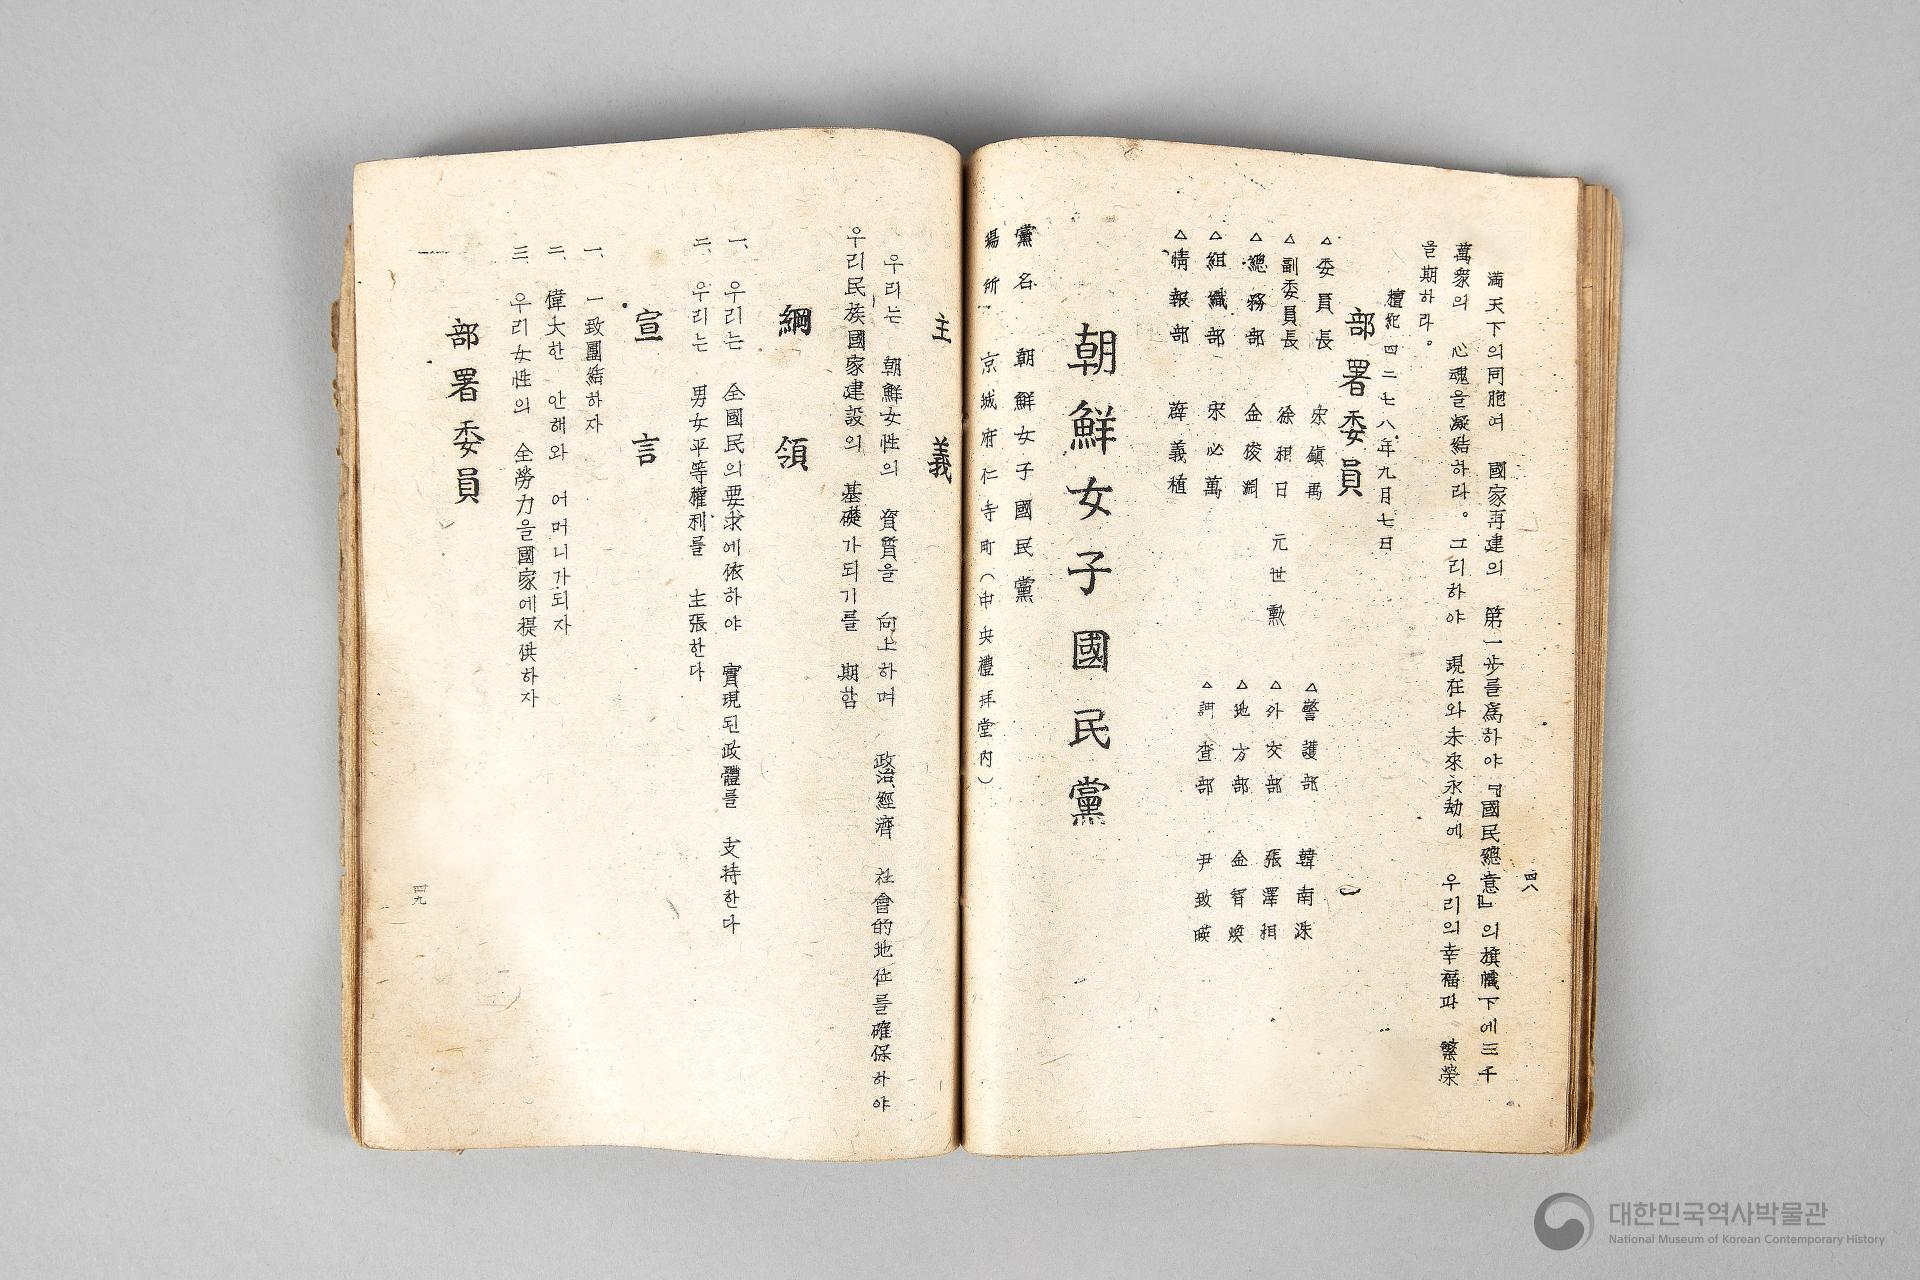 四八
満天下의同胞여 國家再建의 第一步를爲하야『國民總意』의旗幟下에三千
萬衆의 心魂을凝結하라。그리하야 現在와未來永劫에 우리의幸福과 繁榮
을期하라。
檀紀四二七八年九月七日
部署委員
△委員長 宋鎭禹
△副委員長 徐相日 元世勳
△總務部 金俊淵
△組織部 宋必萬
△情報部 薛義植
△警護部 韓南洙
△外交部 張澤相
△地方部 金智煥
△調査部 尹致暎
朝鮮女子國民黨
黨名 朝鮮女子國民黨
場所 京城府仁寺町(中央禮拜堂內)
主義
우리는 朝鮮女性의 資質을 向上하며 政治、經濟 社會的地位를確保하야
우리民族國家建設의 基礎가되기를 期함
綱領
一、우리는 全國民의要求에依하야 實現된政體를 支持한다
二、우리는 男女平等權利를 主張한다
宣言
一、一致團結하자
二、偉大한 안해와 어머니가되자
三、우리女性의 全勞力을國家에提供하자
部署委員
四九
대한민국역사박물관
National Museum of Korean Contemporary History